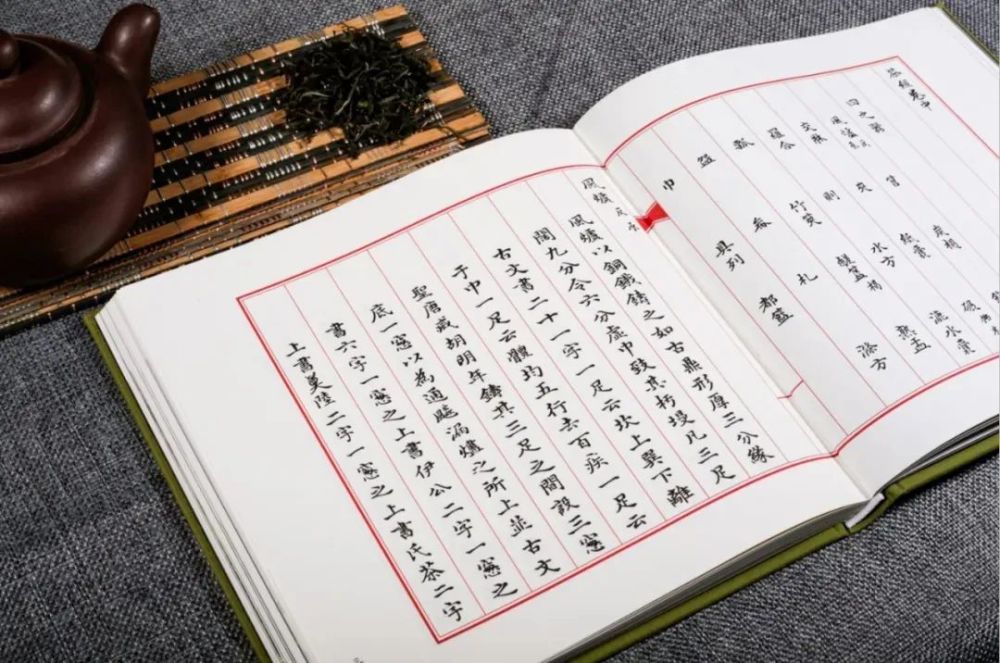 茶經卷中
四之器
風爐灰承 筥 炭檛
交床 夾 紙囊 碾
羅合 則 水方 漉水囊
瓢 竹筴 鹺簋揭 熟盂
盌 畚 札 滌方
巾 具列 都籃
風爐灰承
風爐以銅鐵鑄之如古鼎形厚三分緣
闊九分令六分虛中致其杇墁凡三足
古文書二十一字一足云坎上巽下離
于中一足云體均五行去百疾一足云
聖唐滅胡明年鑄其三足之間設三窻
底一窻以為通飈漏燼之所上並古文
書六字一窻之上書伊公二字一窻之
上書羹陸二字一窻之上書氏茶二字